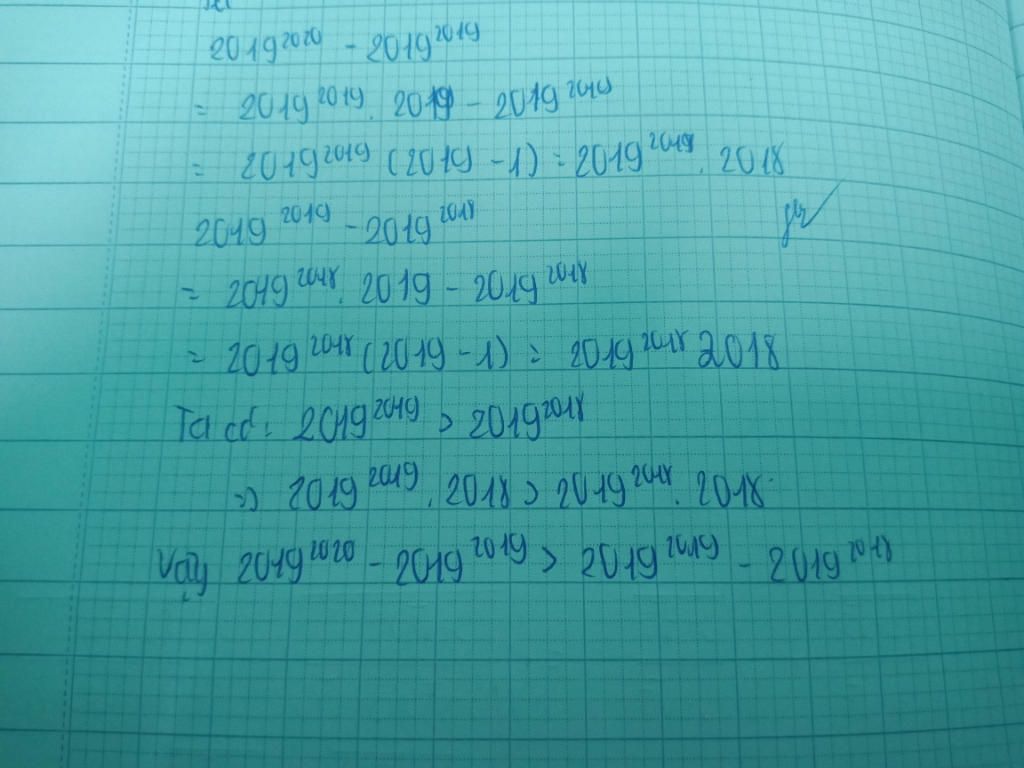 2019²⁰²⁰ - 2019²⁰¹⁹
= 2019²⁰¹⁹. 2019 - 2019²⁰¹⁹
= 2019²⁰¹⁹ (2019 - 1) = 2019²⁰¹⁹. 2018
2019²⁰¹⁹ - 2019²⁰¹⁸
= 2019²⁰¹⁸. 2019 - 2019²⁰¹⁸
= 2019²⁰¹⁸ (2019 - 1) = 2019²⁰¹⁸ 2018
Ta có: 2019²⁰¹⁹ > 2019²⁰¹⁸
=> 2019²⁰¹⁹. 2018 > 2019²⁰¹⁸. 2018
Vậy 2019²⁰²⁰ - 2019²⁰¹⁹ > 2019²⁰¹⁹ - 2019²⁰¹⁸